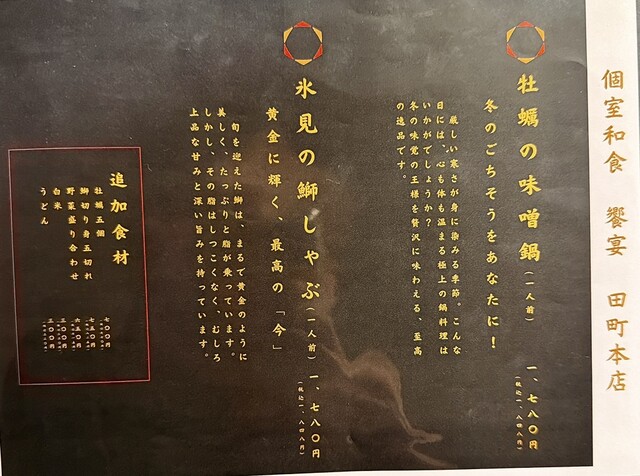 個室和食 饗宴 田町本店
牡蠣の味噌鍋（一人前） 一、七八〇円
（税込一、八四八円）
冬のごちそうをあなたに！
厳しい寒さが身に染みる季節。こんな
日には、心も体も温まる極上の鍋料理は
いかがでしょうか？
冬の味覚の王様を贅沢に味わえる、至高
の逸品です。
氷見の鰤しゃぶ（一人前） 一、七八〇円
（税込一、八四八円）
黄金に輝く、最高の「今」
旬を迎えた鰤は、まるで黄金のように
美しく、たっぷりと脂が乗っています。
しかし、その脂はしつこくなく、むしろ
上品な甘みと深い旨みを持っています。
追加食材
牡蠣五個 七〇〇円
鰤切り身五切れ 七五〇円
野菜盛り合わせ 六五〇円
白米 三〇〇円
うどん 三〇〇円